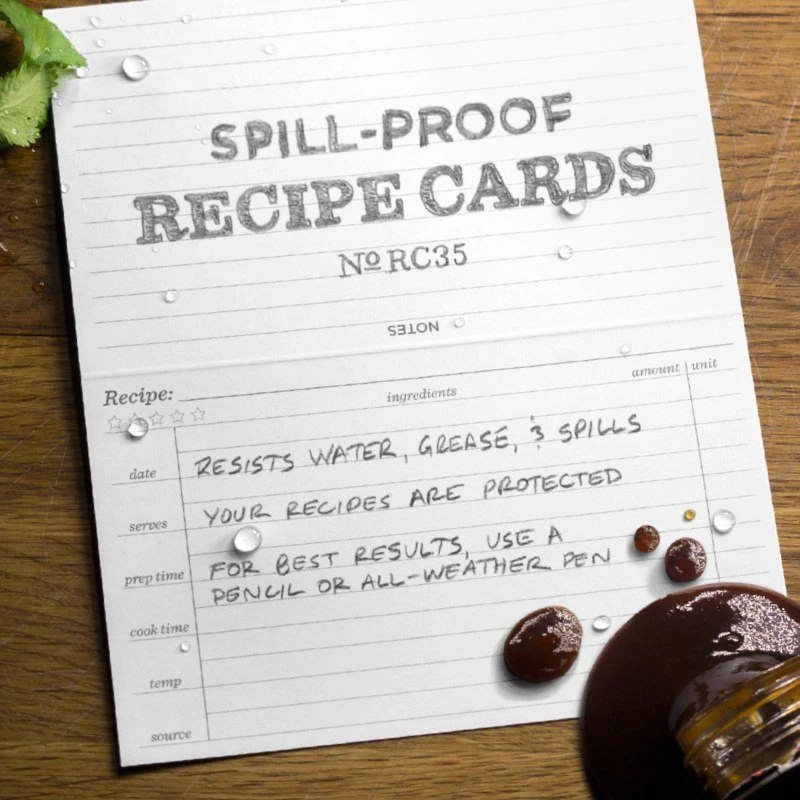 SPILL-PROOF
RECIPE CARDS
Nº RC35
NOTES
Recipe:
ingredients
amount
unit
date
RESISTS WATER, GREASE, & SPILLS
serves
YOUR RECIPES ARE PROTECTED
prep time
FOR BEST RESULTS, USE A
PENCIL OR ALL-WEATHER PEN
cook time
temp
source